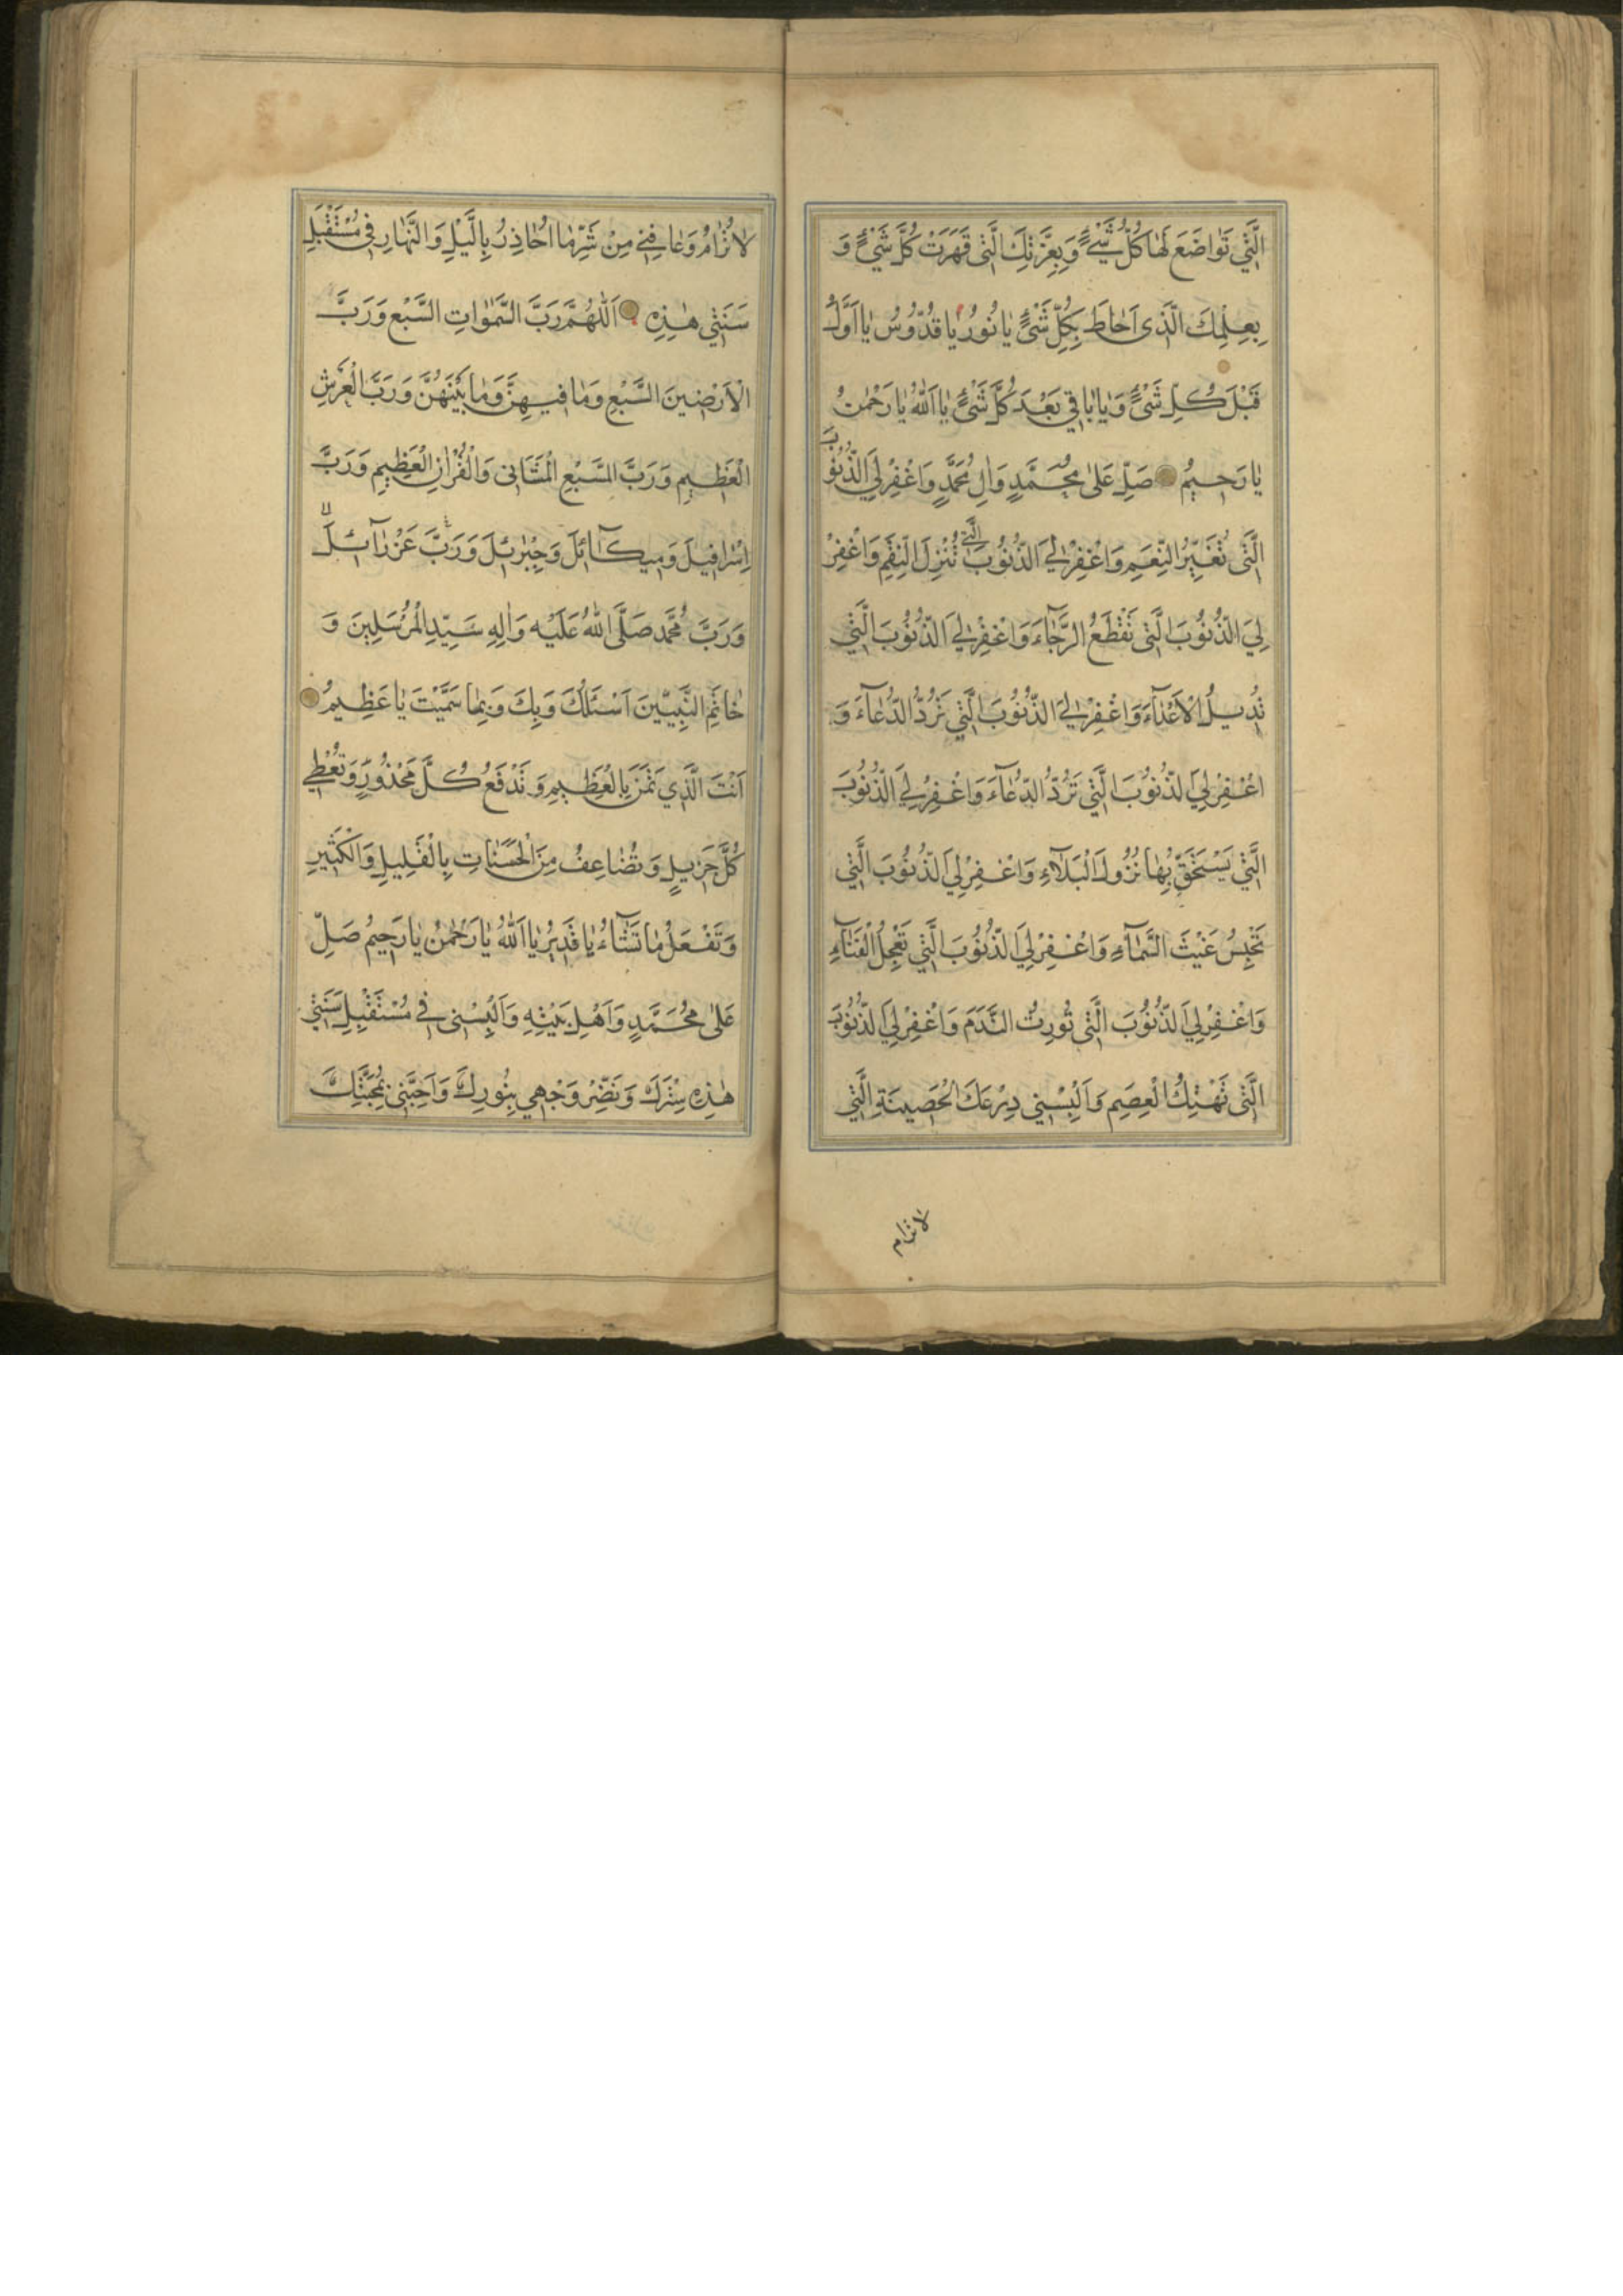 الَّتِي تَوٰاضَعَ لَهٰا كُلُّ شَيْءٍ وَبِعِزَّتِكَ الَّتِي قَهَرَتْ كُلَّ شَيْءٍ وَ
بِعِلْمِكَ الَّذِى اَحٰاطَ بِكُلِّ شَىْءٍ يٰا نُورُ يٰا قُدُّوسُ يٰا اَوَّلُ
قَبْلَ كُلِّ شَىْءٍ وَيٰا بٰاقِي بَعْدَ كُلَّ شَىْءٍ يٰا اَللّٰهُ يٰا رَحْمٰنُ
يٰا رَحِيمُ صَلِّ عَلىٰ مُحَمَّدٍ وَاٰلِ مُحَمَّدٍ وَاغْفِرْ لِيَ الذُّنُوبَ
الَّتِى تُغَيِّرُ النِّعَمِ وَاغْفِرْ لِيَ الذُّنُوبَ الَّتِي تُنْزِلَ النِّقَمِ وَاغْفِرْ
لِيَ الذُّنُوبَ الَّتِى تَقْطَعُ الرَّجٰاءَ وَاغْفِرْ لِيَ الذُّنُوبَ الَّتِي
تُدِيلُ الْاَعْدٰاۤءَ وَاغْفِرْ لِيَ الذُّنُوبَ الَّتِي تَرُدُّ الدُّعٰاۤءَ وَ
اغْفِرْ لِيَ لذُّنُوبَ الَّتِي تَرُدُّ الدُّعٰاۤءَ وَاغْفِرْ لِيَ الذُّنُوبَ
الَّتِي يَسْتَحَقِّ بِهٰا نُزُولَ الْبَلَاۤءِ وَاغْفِرْ لِيَ لذُّنُوبَ الَّتِي
تَحْبِسُ غَيْثَ السَّمٰاۤءِ وَاغْفِرْ لِيَ لذُّنُوبَ الَّتِي تَعْجِلُ الْفَنٰاۤءِ
وَاغْفِرْ لِيَ لذُّنُوبَ الَّتِى تُورِثُ النَّدَمَ وَاغْفِرْ لِيَ لذُّنُوبَ
الَّتِى تَهْتِكُ الْعِصَمِ وَاَلْبِسْنِي دِرْعَكَ الْحَصِينَةِ الَّتِي
لا ترام
لاٰ تُرٰامُ وَعٰافِنِي مِنْ شَرِّ مٰا اُحٰاذِرُ بِالَّيْلِ وَالنَّهٰارِ فِى مُسْتَقْبَلِ
سَنَتِي هٰذِهِ اَللّٰهُمَّ رَبَّ السَّمٰوٰاتِ السَّبْعِ وَرَبَّ
الْاَرْضِينَ السَّبْعِ وَمٰا فِيهِنَّ وَمٰا بَيْنَهُنَّ وَرَبَّ الْعَرْشِ
الْعَظِيمِ وَرَبَّ السَّبْعِ الْمَثَانِى وَالْقُرْاٰنِ الْعَظِيمِ وَرَبَّ
اِسْرٰافِيلَ وَمِيكَاۤئِلَ وَجِبْرٰئِلَ وَرَبَّ عَزْرٰاۤئِلَ
وَرَبَّ مُحَمَّد صَلَّى اللّٰهُ عَلَيْهِ وَاٰلِهِ سَيِّدِ الْمُرْسَلِينَ وَ
خٰاتَمِ النَّبِيّينَ اَسْئَلُكَ وَبِكَ وَبِمٰا سَمَّيْتَ يٰا عَظِيمُ
اَنْتَ الَّذِي تَمُنَّ بِالْعَظِيمِ وَتَدْفَعُ كُلَّ مَحْذُورٍ وَتُعْطِي
كُلَّ جَزِيلٍ وَتُضٰاعِفُ مِنَ الْحَسَنٰاتِ بِالْقَلِيلِ وَالْكَثِيرِ
وَتَفْعَلُ مٰا تَشٰاۤءُ يٰا قَدِيرُ يٰا اَللّٰهُ يٰا رَحْمٰنُ يٰا رَحِيمُ صَلِّ
عَلىٰ مُحَمَّدٍ وَاَهْلِ بَيْتِهِ وَاَلْبِسْنِى فِي مُسْتَقْبِلِ سَنَتِي
هٰذِهِ سِتْرَكَ وَنَضِّرْ وَجْهِي بِنُورِكَ وَاَحِبَّنِى بِمُحَبَّتِكَ